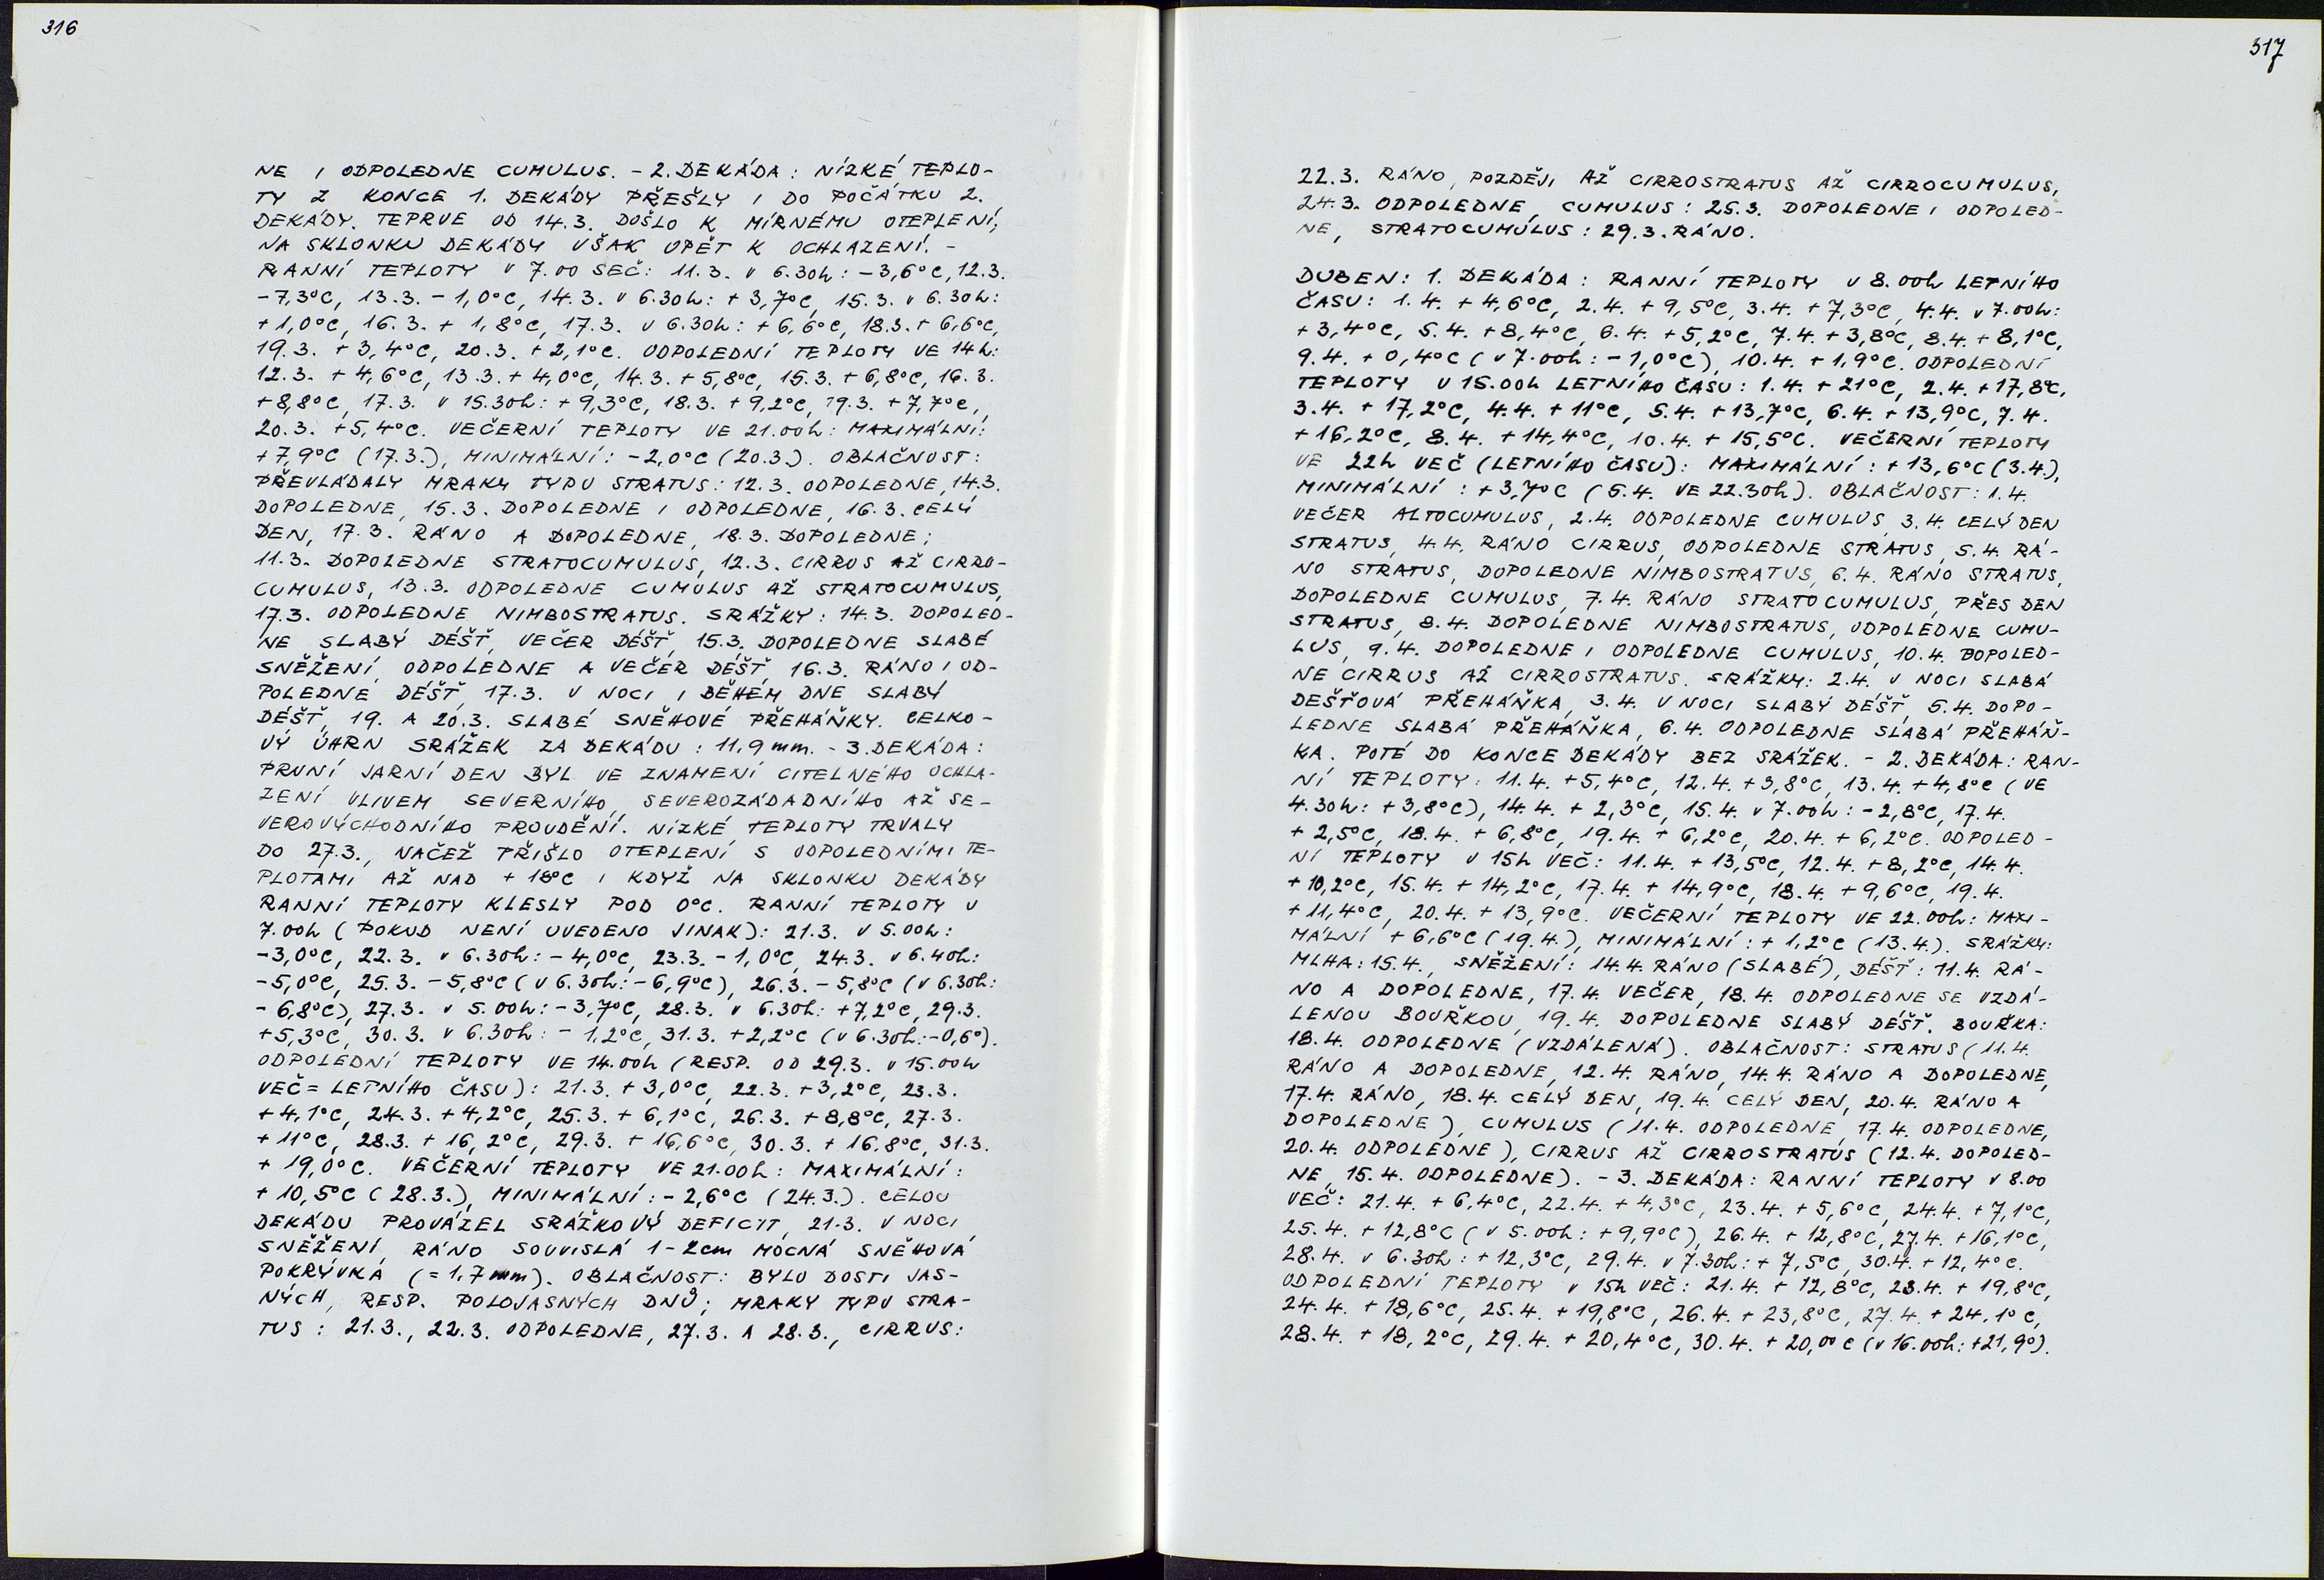 316
NE I ODPOLEDNE CUMULUS. - 2. DEKÁDA: NÍZKÉ TEPLO-
TY Z KONCE 1. DEKÁDY PŘEŠLY I DO POČÁTKU 2.
DEKÁDY. TEPRVE OD 14.3. DOŠLO K MÍRNÉMU OTEPLENÍ,
NA SKLONKU DEKÁDY VŠAK OPĚT K OCHLAZENÍ. -
RANNÍ TEPLOTY V 7.00 SEČ: 11.3. v 6.30h: -3,6°C, 12.3.
-7,3°C, 13.3. -1,0°C, 14.3. v 6.30h: +3,7°C, 15.3. v 6.30h:
+1,0°C, 16.3. +1,8°C, 17.3. v 6.30h: +6,6°C, 18.3. +6,6°C,
19.3. +3,4°C, 20.3. +2,1°C. ODPOLEDNÍ TEPLOTY VE 14h:
12.3. +4,6°C, 13.3. +4,0°C, 14.3. +5,8°C, 15.3. +6,8°C, 16.3.
+8,8°C, 17.3. v 15.30h: +9,3°C, 18.3. +9,2°C, 19.3. +7,7°C,
20.3. +5,4°C. VEČERNÍ TEPLOTY VE 21.00h: MAXIMÁLNÍ:
+7,9°C (17.3.), MINIMÁLNÍ: -2,0°C (20.3.). OBLAČNOST:
PŘEVLÁDALY MRAKY TYPU STRATUS: 12.3. ODPOLEDNE, 14.3.
DOPOLEDNE, 15.3. DOPOLEDNE I ODPOLEDNE, 16.3. CELÝ
DEN, 17.3. RÁNO A DOPOLEDNE, 18.3. DOPOLEDNE;
11.3. DOPOLEDNE STRATOCUMULUS, 12.3. CIRRUS AŽ CIRRO-
CUMULUS, 13.3. ODPOLEDNE CUMULUS AŽ STRATOCUMULUS,
17.3. ODPOLEDNE NIMBOSTRATUS. SRÁŽKY: 14.3. DOPOLED-
NE SLABÝ DÉŠŤ, VEČER DÉŠŤ, 15.3. DOPOLEDNE SLABÉ
SNĚŽENÍ, ODPOLEDNE A VEČER DÉŠŤ, 16.3. RÁNO I OD-
POLEDNE DÉŠŤ, 17.3. V NOCI I BĚHEM DNE SLABÝ
DÉŠŤ, 19. A 20.3. SLABÉ SNĚHOVÉ PŘEHÁŇKY. CELKO-
VÝ ÚHRN SRÁŽEK ZA DEKÁDU: 11,9 mm. - 3. DEKÁDA:
PRVNÍ JARNÍ DEN BYL VE ZNAMENÍ CITELNÉHO OCHLA-
ZENÍ VLIVEM SEVERNÍHO, SEVEROZÁDADNÍHO AŽ SE-
VEROVÝCHODNÍHO PROUDĚNÍ. NÍZKÉ TEPLOTY TRVALY
DO 27.3., NAČEŽ PŘIŠLO OTEPLENÍ S ODPOLEDNÍMI TE-
PLOTAMI AŽ NAD +18°C I KDYŽ NA SKLONKU DEKÁDY
RANNÍ TEPLOTY KLESLY POD 0°C. RANNÍ TEPLOTY V
7.00h (POKUD NENÍ UVEDENO JINAK): 21.3. v 5.00h:
-3,0°C, 22.3. v 6.30h: -4,0°C, 23.3. -1,0°C, 24.3. v 6.40h:
-5,0°C, 25.3. -5,8°C (v 6.30h: -6,9°C), 26.3. -5,8°C (v 6.30h:
-6,8°C), 27.3. v 5.00h: -3,7°C, 28.3. v 6.30h: +7,2°C, 29.3.
+5,3°C, 30.3. v 6.30h: -1,2°C, 31.3. +2,2°C (v 6.30h: -0,6°).
ODPOLEDNÍ TEPLOTY VE 14.00h (RESP. OD 29.3. v 15.00h
VEČ = LETNÍHO ČASU): 21.3. +3,0°C, 22.3. +3,2°C, 23.3.
+4,1°C, 24.3. +4,2°C, 25.3. +6,1°C, 26.3. +8,8°C, 27.3.
+11°C, 28.3. +16,2°C, 29.3. +16,6°C, 30.3. +16,8°C, 31.3.
+19,0°C. VEČERNÍ TEPLOTY VE 21.00h: MAXIMÁLNÍ:
+10,5°C (28.3.), MINIMÁLNÍ: -2,6°C (24.3.). CELOU
DEKÁDU PROVÁZEL SRÁŽKOVÝ DEFICIT, 21.3. V NOCI
SNĚŽENÍ, RÁNO SOUVISLÁ 1-2cm MOCNÁ SNĚHOVÁ
POKRÝVKA (=1,7mm). OBLAČNOST: BYLO DOSTI JAS-
NÝCH, RESP. POLOJASNÝCH DNŮ; MRAKY TYPU STRA-
TUS: 21.3., 22.3. ODPOLEDNE, 27.3. A 28.3., CIRRUS:
317
22.3. RÁNO, POZDĚJI AŽ CIRROSTRATUS AŽ CIRROCUMULUS,
24.3. ODPOLEDNE, CUMULUS: 25.3. DOPOLEDNE I ODPOLED-
NE, STRATOCUMULUS: 29.3. RÁNO.
DUBEN: 1. DEKÁDA: RANNÍ TEPLOTY v 8.00h LETNÍHO
ČASU: 1.4. +4,6°C, 2.4. +9,5°C, 3.4. +7,3°C, 4.4. v 7.00h:
+3,4°C, 5.4. +8,4°C, 6.4. +5,2°C, 7.4. +3,8°C, 8.4. +8,1°C,
9.4. +0,4°C (v 7.00h: -1,0°C), 10.4. +1,9°C. ODPOLEDNÍ
TEPLOTY V 15.00h LETNÍHO ČASU: 1.4. +21°C, 2.4. +17,8°C,
3.4. +17,2°C, 4.4. +11°C, 5.4. +13,7°C, 6.4. +13,9°C, 7.4.
+16,2°C, 8.4. +14,4°C, 10.4. +15,5°C. VEČERNÍ TEPLOTY
VE 22h VEČ (LETNÍHO ČASU): MAXIMÁLNÍ: +13,6°C (3.4.),
MINIMÁLNÍ: +3,7°C (5.4. VE 22.30h). OBLAČNOST: 1.4.
VEČER ALTOCUMULUS, 2.4. ODPOLEDNE CUMULUS, 3.4. CELÝ DEN
STRATUS, 4.4. RÁNO CIRRUS, ODPOLEDNE STRATUS, 5.4. RÁ-
NO STRATUS, DOPOLEDNE NIMBOSTRATUS, 6.4. RÁNO STRATUS,
DOPOLEDNE CUMULUS, 7.4. RÁNO STRATOCUMULUS, PŘES DEN
STRATUS, 8.4. DOPOLEDNE NIMBOSTRATUS, ODPOLEDNE CUMU-
LUS, 9.4. DOPOLEDNE I ODPOLEDNE CUMULUS, 10.4. DOPOLED-
NE CIRRUS AŽ CIRROSTRATUS. SRÁŽKY: 2.4. V NOCI SLABÁ
DEŠŤOVÁ PŘEHÁŇKA, 3.4. V NOCI SLABÝ DÉŠŤ, 5.4. DOPO-
LEDNE SLABÁ PŘEHÁŇKA, 6.4. ODPOLEDNE SLABÁ PŘEHÁŇ-
KA. POTÉ DO KONCE DEKÁDY BEZ SRÁŽEK. - 2. DEKÁDA: RAN-
NÍ TEPLOTY: 11.4. +5,4°C, 12.4. +3,8°C, 13.4. +4,8°C (VE
4.30h: +3,8°C), 14.4. +2,3°C, 15.4. v 7.00h: -2,8°C, 17.4.
+2,5°C, 18.4. +6,8°C, 19.4. +6,2°C, 20.4. +6,2°C. ODPOLED-
NÍ TEPLOTY V 15h VEČ: 11.4. +13,5°C, 12.4. +8,2°C, 14.4.
+10,2°C, 15.4. +14,2°C, 17.4. +14,9°C, 18.4. +9,6°C, 19.4.
+11,4°C, 20.4. +13,9°C. VEČERNÍ TEPLOTY VE 22.00h: MAXI-
MÁLNÍ +6,6°C (19.4.), MINIMÁLNÍ: +1,2°C (13.4.). SRÁŽKY:
MLHA: 15.4., SNĚŽENÍ: 14.4. RÁNO (SLABÉ), DÉŠŤ: 11.4. RÁ-
NO A DOPOLEDNE, 17.4. VEČER, 18.4. ODPOLEDNE SE VZDÁ-
LENOU BOUŘKOU, 19.4. DOPOLEDNE SLABÝ DÉŠŤ. BOUŘKA:
18.4. ODPOLEDNE (VZDÁLENÁ). OBLAČNOST: STRATUS (11.4.
RÁNO A DOPOLEDNE, 12.4. RÁNO, 14.4. RÁNO A DOPOLEDNE,
17.4. RÁNO, 18.4. CELÝ DEN, 19.4. CELÝ DEN, 20.4. RÁNO A
DOPOLEDNE), CUMULUS (11.4. ODPOLEDNE, 17.4. ODPOLEDNE,
20.4. ODPOLEDNE), CIRRUS AŽ CIRROSTRATUS (12.4. DOPOLED-
NE, 15.4. ODPOLEDNE). - 3. DEKÁDA: RANNÍ TEPLOTY v 8.00
VEČ: 21.4. +6,4°C, 22.4. +4,3°C, 23.4. +5,6°C, 24.4. +7,1°C,
25.4. +12,8°C (v 5.00h: +9,9°C), 26.4. +12,8°C, 27.4. +16,1°C,
28.4. v 6.30h: +12,3°C, 29.4. v 7.30h: +7,5°C, 30.4. +12,4°C.
ODPOLEDNÍ TEPLOTY v 15h VEČ: 21.4. +12,8°C, 23.4. +19,8°C,
24.4. +18,6°C, 25.4. +19,8°C, 26.4. +23,8°C, 27.4. +24,1°C,
28.4. +18,2°C, 29.4. +20,4°C, 30.4. +20,0°C (v 16.00h: +21,9°).